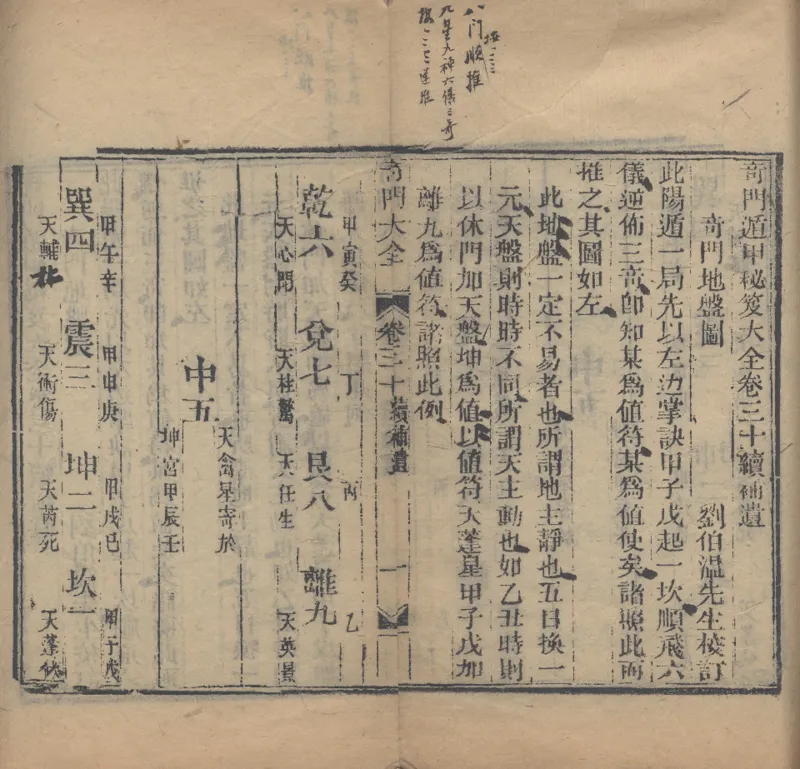 八门顺推
九星九神六儀三奇
奇門遁甲秘笈大全卷三十續補遺
奇門地盤圖 劉伯温先生校訂
此陽遁一局先以左边掌訣甲子戊起一坎順飛六
儀逆佈三奇卽知某爲值符某爲值使矣諸照此而
推之其圖如左
此地盤一定不易者也所謂地主靜也五日換一
元天盤則時時不同所謂天主動也如乙丑時則
以休門加天盤坤爲值以值符天蓬星甲子戊加
離九爲值符諸照此例
奇門大全 卷三十續補遺 一
甲寅癸 丁 丙 乙
乾六 兌七 艮八 離九
天心開 天柱驚 天任生 天英景
天禽星寄於
中五
坤宮甲辰壬
甲午辛 甲申庚 甲戌己 甲子戊
巽四 震三 坤二 坎一
天輔杜 天衝傷 天芮死 天蓬休